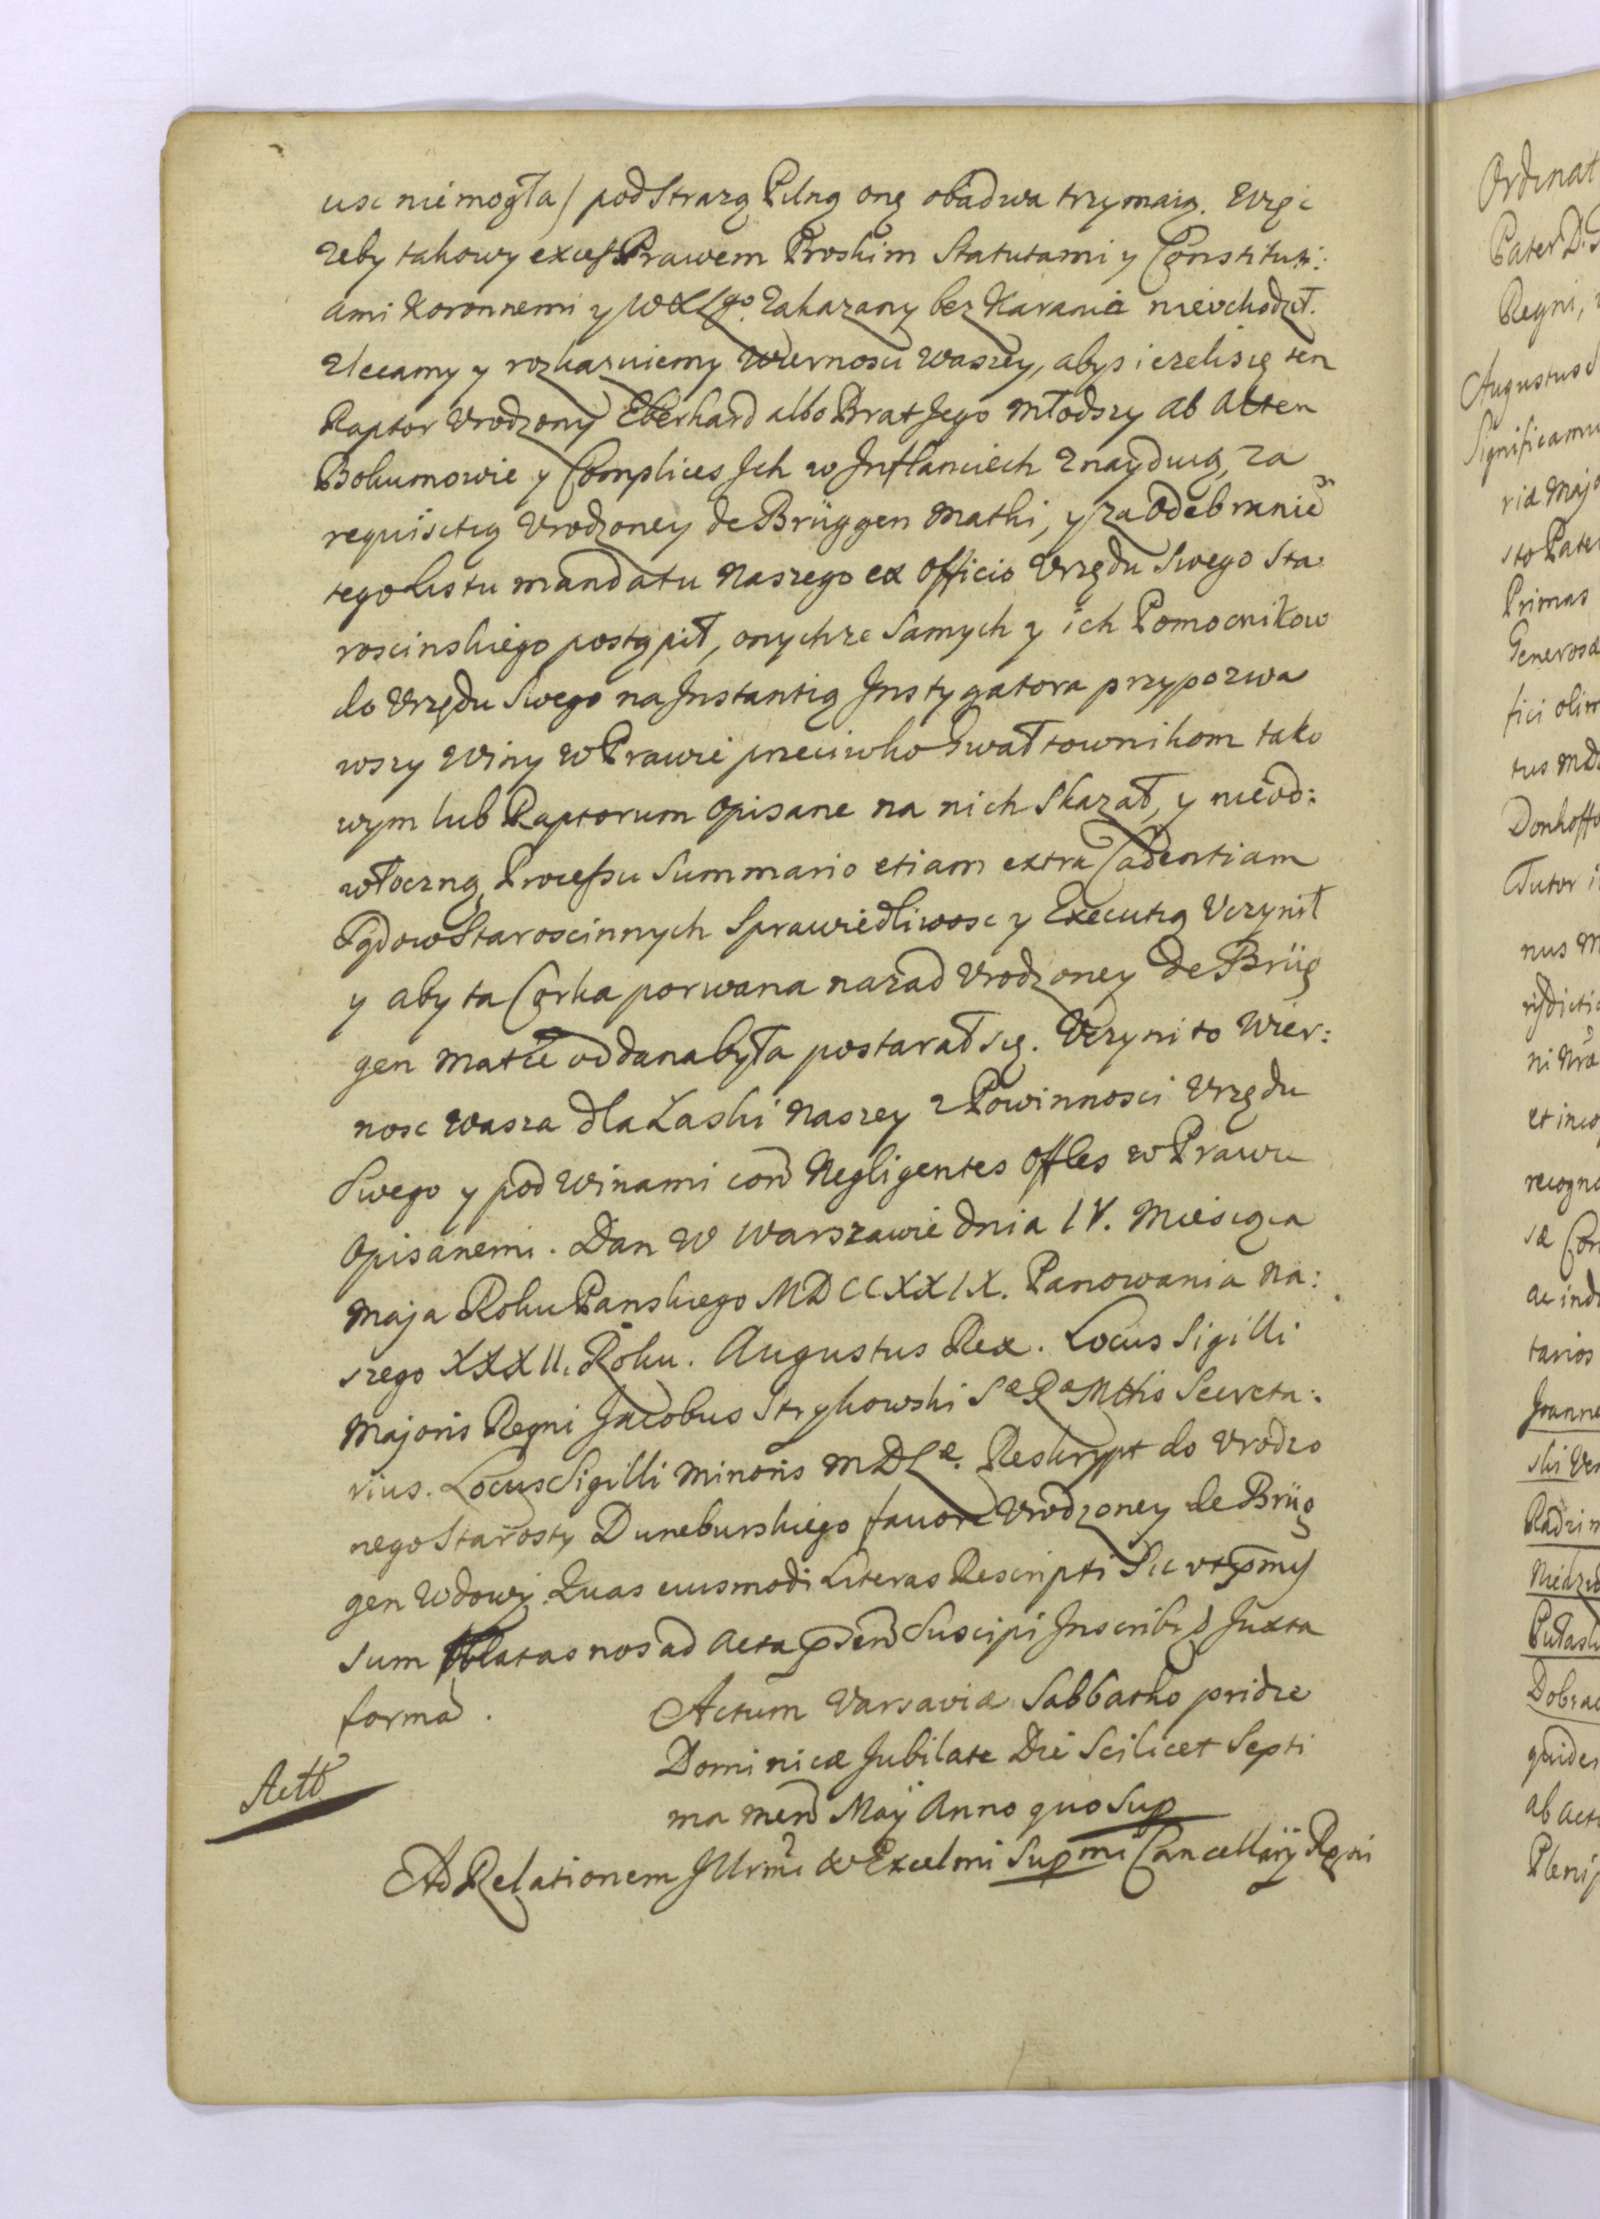 usc niemogła) pod Strażą Pilną onę obadwa trzymaią. Więc
żeby takowy excess Prawem Boskim Statutami y Constituti:
ami Koronnemi y WXLgo. Zakazany bez Karania nieuchodził.
Zlecamy y rozkazuiemy Wiernosci Waszey, abys iezeli się ten
Raptor Urodzony Eberhard albo Brat Jego młodszy ab Alten
Bokumowie y Complices Jch w Jnflanciech znayduią, za
requisitią Urodzoney de Brüggen Matki, y za odebraniem
tego Listu mandatu Naszego ex Officio Urzędu Swego Sta
roscinskiego postąpił, onychze Samych y ich Pomocnikow
do Urzędu Swego na Jnstantią Jnstygatora przypozwa
wszy Winy w Prawie przeciwko Gwałtownikom tako
wym lub Raptorum opisane na nich Skazał, y nieod:
włoczną Processu Summario etiam extra Cadentiam
Sądow Staroscinnych Sprawiedliwosc y Executią Uczynił
y aby ta Corka porwana nazad Urodzoney de Brüg
gen Matce oddana była postarał się. Uczyni to Wier:
nosc Wasza dla Łaski Naszey z Powinnosci Urzędu
Swego y pod Winami con Negligentes Offles w Prawie
Opisanemi. Dan w Warszawie dnia IV. Miesiąca
Maja Roku Panskiego MDCCXXIX. Panowania Na:
szego XXXII. Roku. Augustus Rex. Locus Sigilli
Majoris Regni Jacobus Strykowski Sæ Ræ Mttis Secreta:
rius. Locus Sigilli Minoris MDLæ. Reskrypt do Urodzo
nego Starosty Duneburskiego favore Urodzoney de Brüg
gen Wdowy. Quas eiusmodi Literas Rescripti Sic ut pmis
sum oblatas nos ad Acta psen Suscipi Jnscribi Juxta
forma.
Actum Varsaviæ Sabbatho pridie
Dominicæ Jubilate Die Scilicet Septi
ma mens Maÿ Anno quo Sup
Actt
Ad Relationem Jllrmi & Excelmi Supmi Cancellarÿ Regni
Ordinat
Pater D.
Regni,
Augustus
Significamus
riæ Majo
sto Pate
Primas
Generosæ
fici olim
tus MD
Donhoffo
Tutor i
nus M
risdictio
ni Nræ
et inco
recogno
sæ Con
ac ind
tarios
Joanne
ski Ven
Radzim
Niedzw
Putask
Dobrac
quidem
ab acti
Plenip